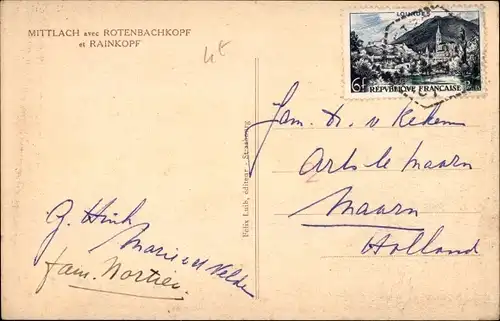 MITTLACH avec ROTENBACHKOPF
et RAINKOPF
4€
LOURDES
6f REPVBLIQUE FRANÇAISE
Felix Luib, éditeur - Strasbourg
Fam. Dr. v Kekem
Arts te Maarn
Maarn
Holland
G. Hink
Marie v d Velde
fam. Mortier.